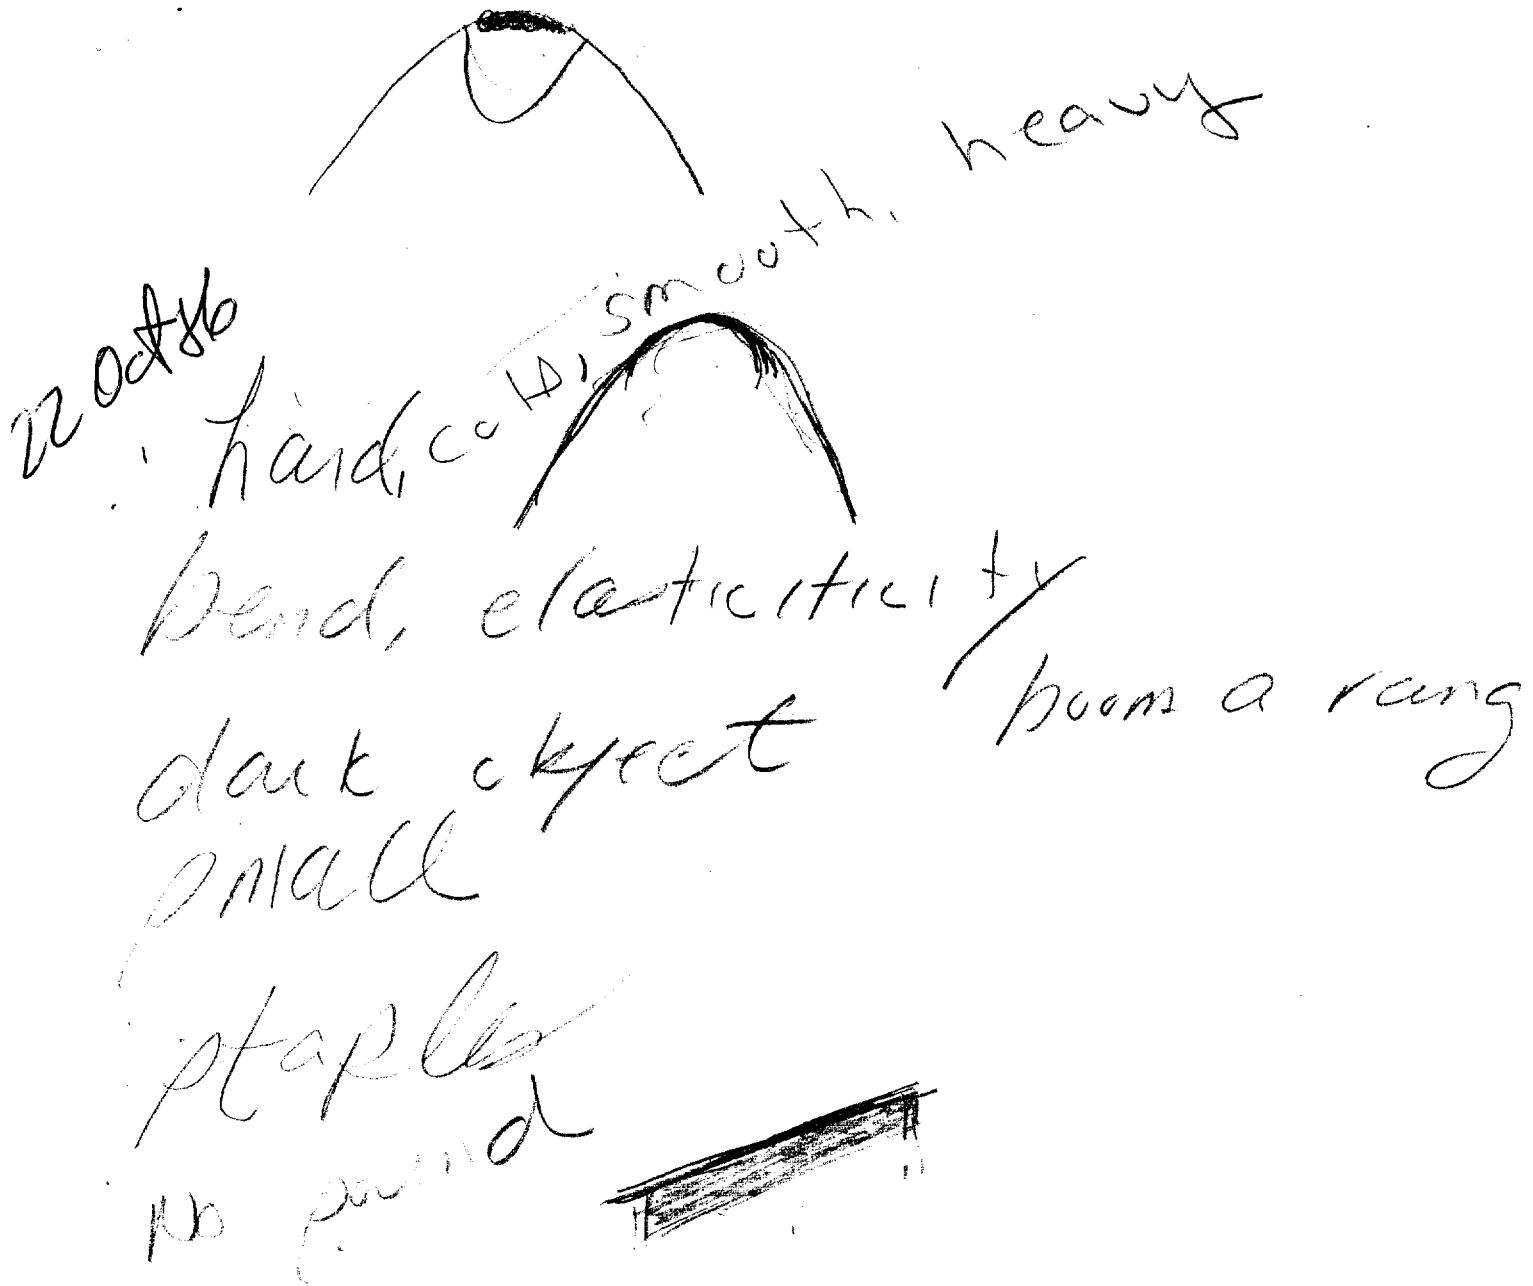 22 Oct 86
hard, cold, smooth, heavy
bend, elasticiticity
boom a rang
dark object
small
stapler
No sound